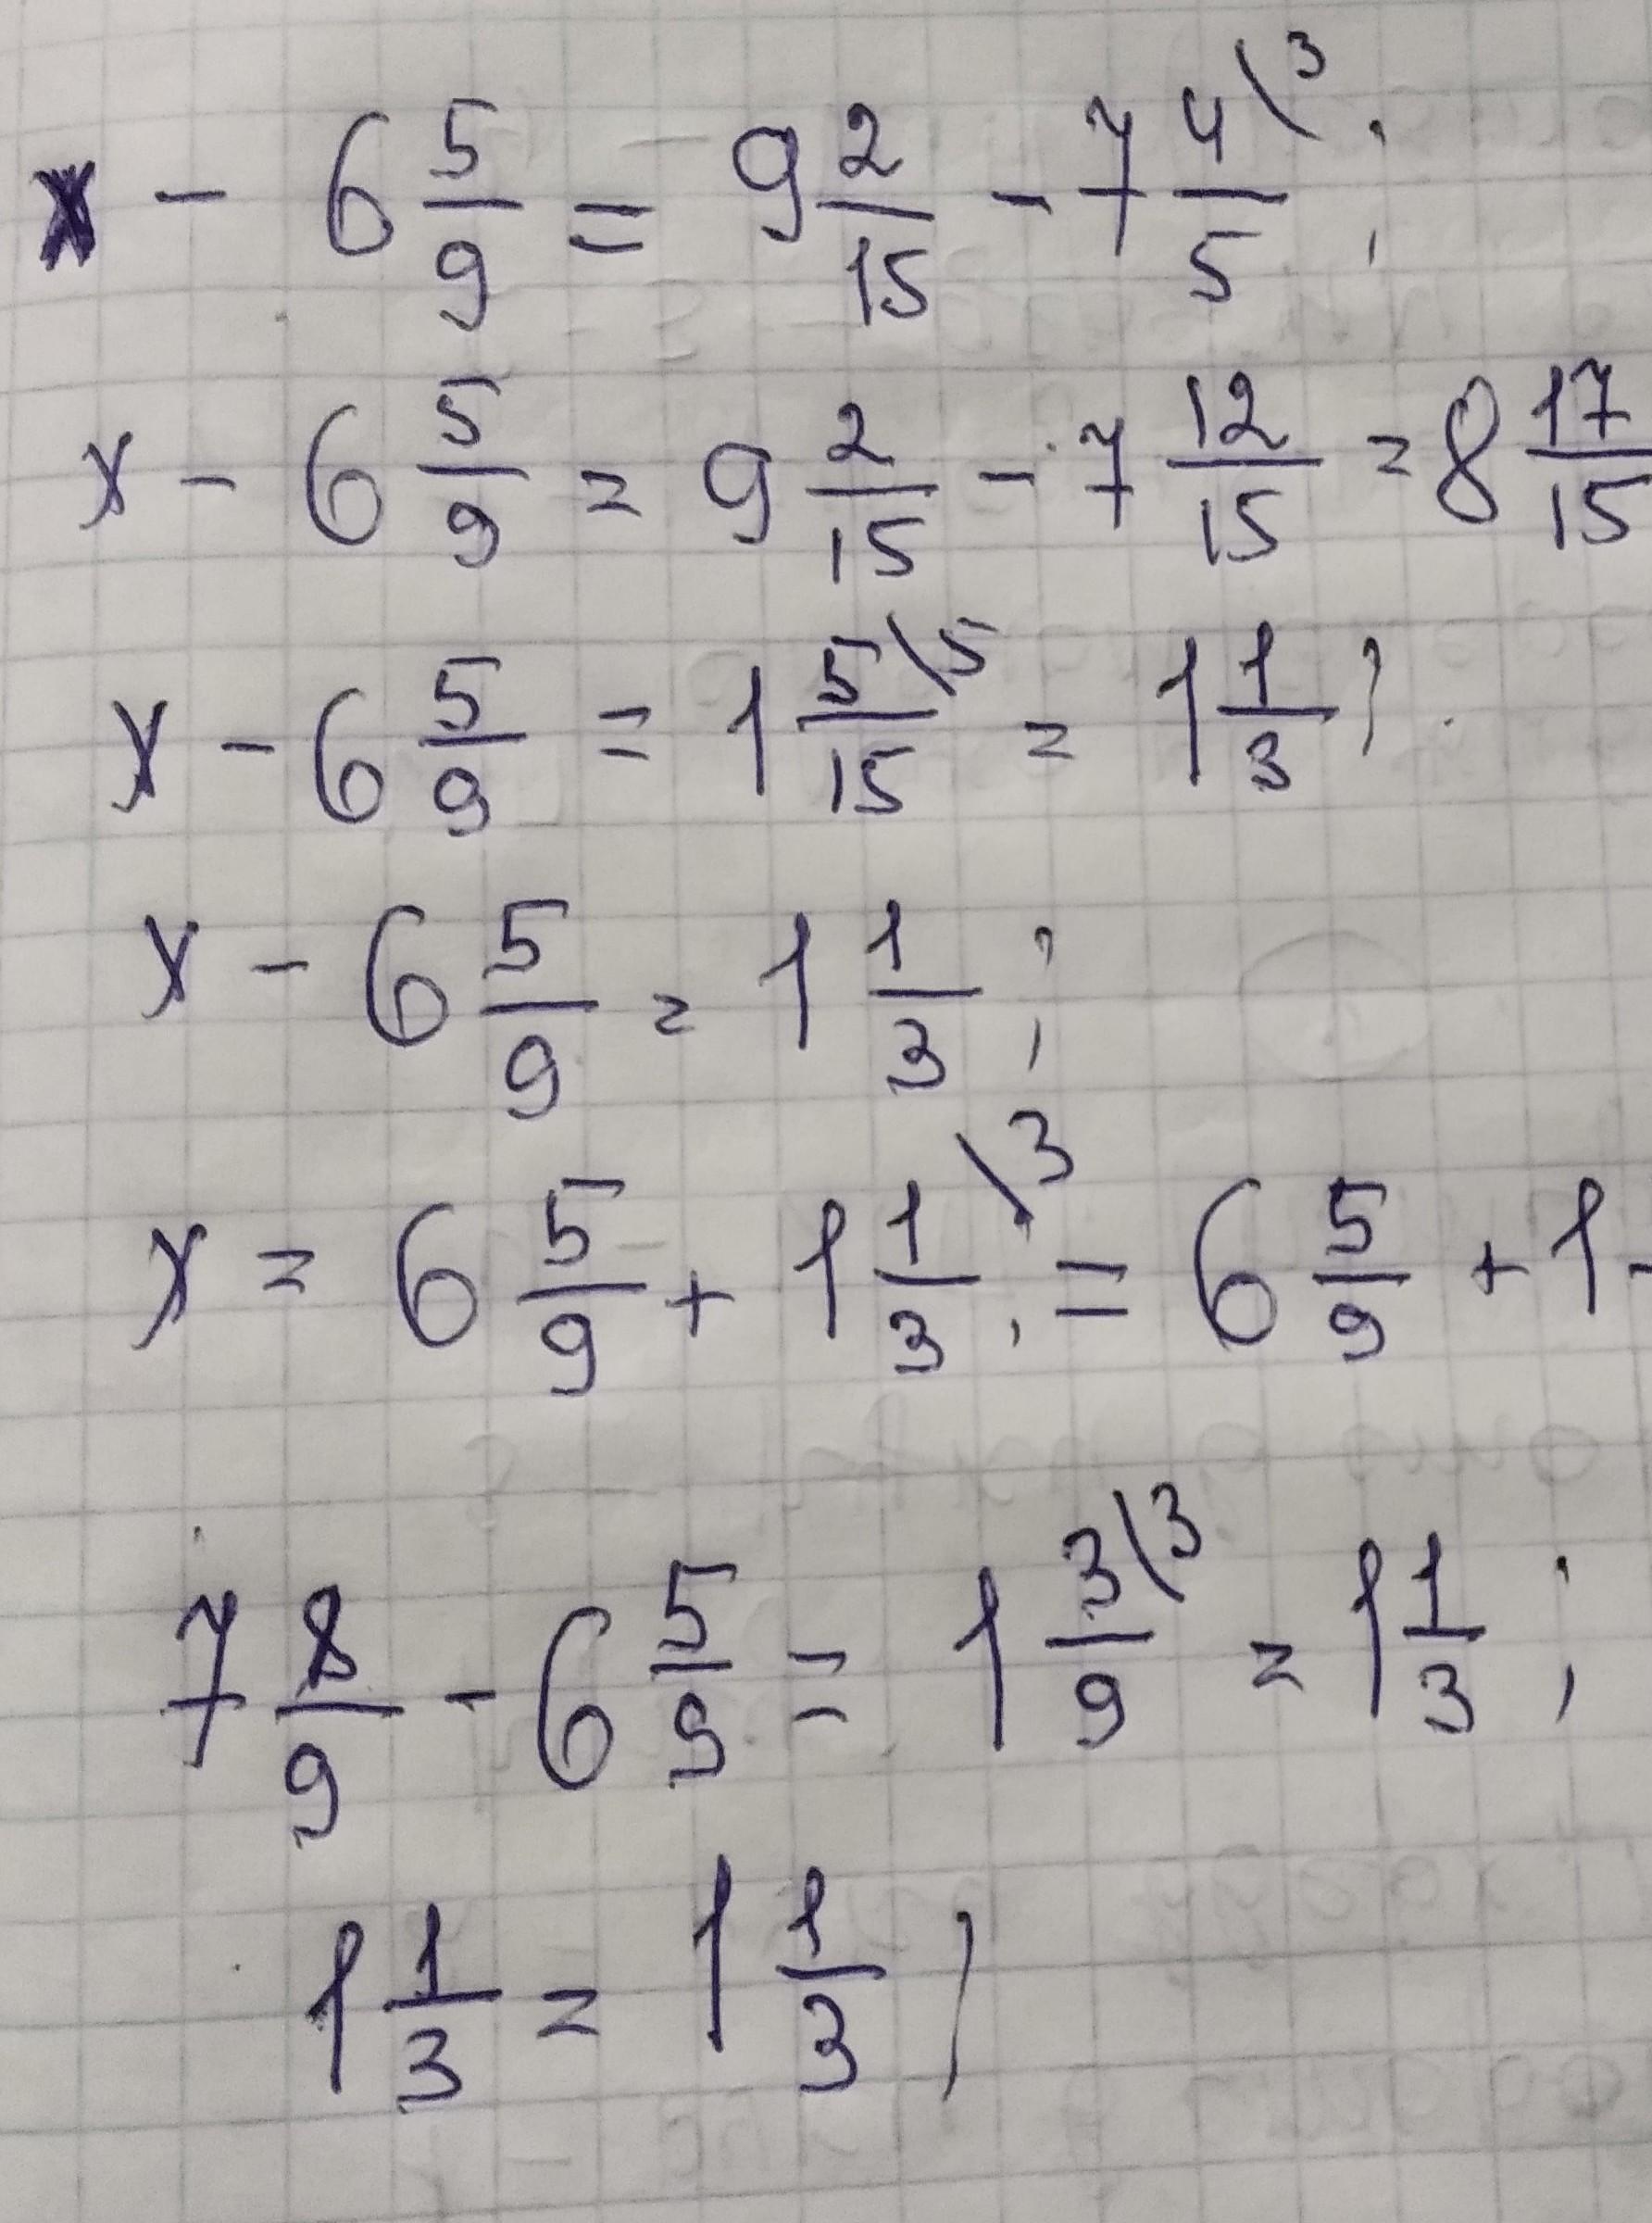 x - 6 5/9 = 9 2/15 - 7 4\3/5;
x - 6 5/9 = 9 2/15 - 7 12/15 = 8 17/15
x - 6 5/9 = 1 5\5/15 = 1 1/3;
x - 6 5/9 = 1 1/3;
x = 6 5/9 + 1 1\3/3; = 6 5/9 + 1
7 8/9 - 6 5/9 = 1 3\3/9 = 1 1/3;
1 1/3 = 1 1/3;